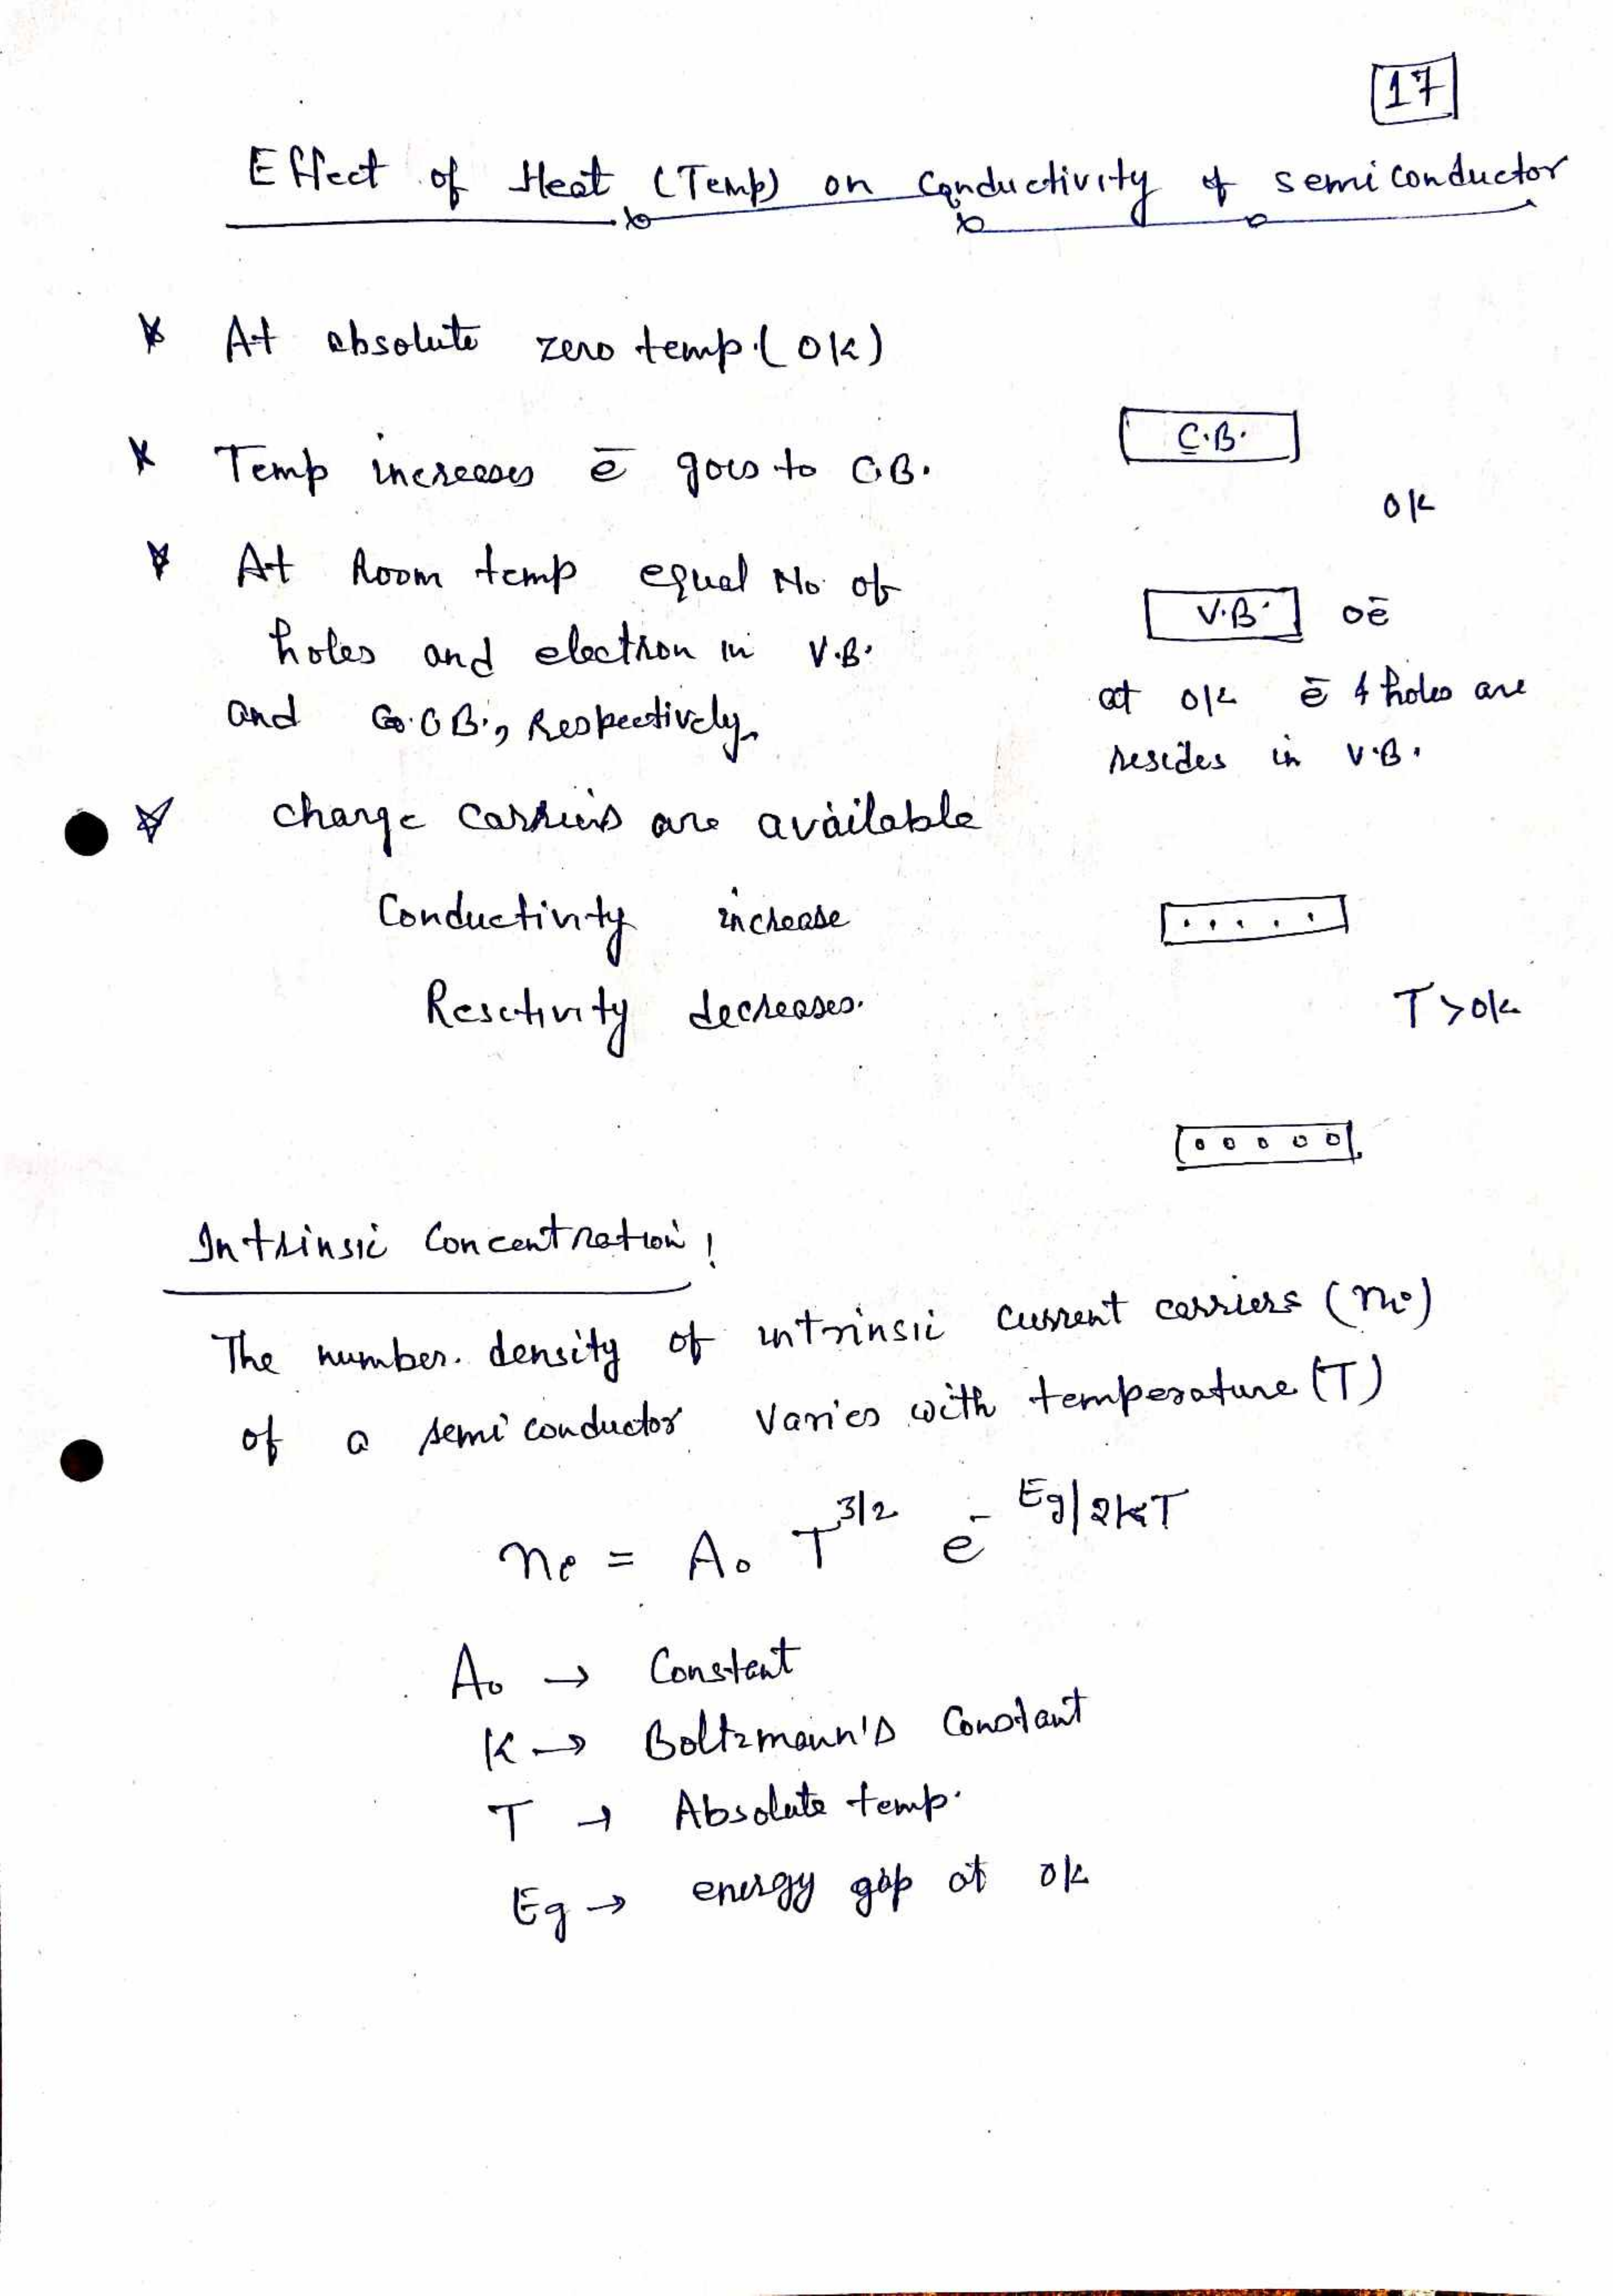 17
Effect of Heat (Temp) on Conductivity of semiconductor
* At absolute zero temp. (0k)
* Temp increases ē goes to C.B.
C.B.
0k
* At Room temp equal No. of
holes and electron in V.B.
and C.B., Respectively.
V.B. 0ē
at 0k ē & holes are
resides in V.B.
* charge carriers are available
Conductivity increase
Resctivity decreases.
T>0k
Intrinsic Concentration!
The number. density of intrinsic current carriers (ni)
of a semiconductor varies with temperature (T)
ni = A₀ T^3/2 e^-Eg/2kT
A₀ → Constant
K → Boltzmann's Constant
T → Absolute temp.
Eg → energy gap at 0k